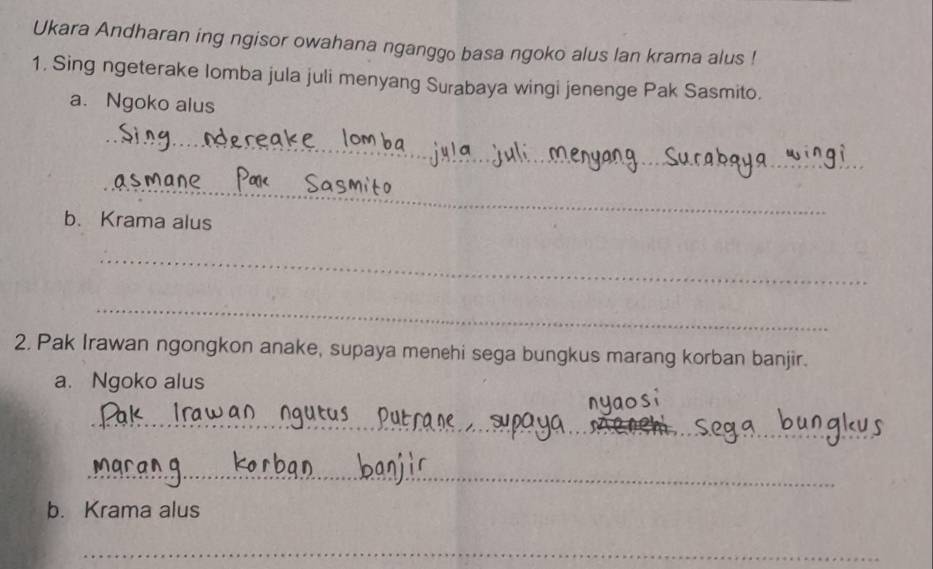 Ukara Andharan ing ngisor owahana nganggo basa ngoko alus lan krama alus !
1. Sing ngeterake lomba jula juli menyang Surabaya wingi jenenge Pak Sasmito.
a. Ngoko alus
Sing ndereake lomba jula juli menyang Surabaya wingi
asmane Pak Sasmito
b. Krama alus
2. Pak Irawan ngongkon anake, supaya menehi sega bungkus marang korban banjir.
a. Ngoko alus
nyaosi
Pak Irawan ngutus Putrane, supaya menehi sega bungkus
marang korban banjir
b. Krama alus